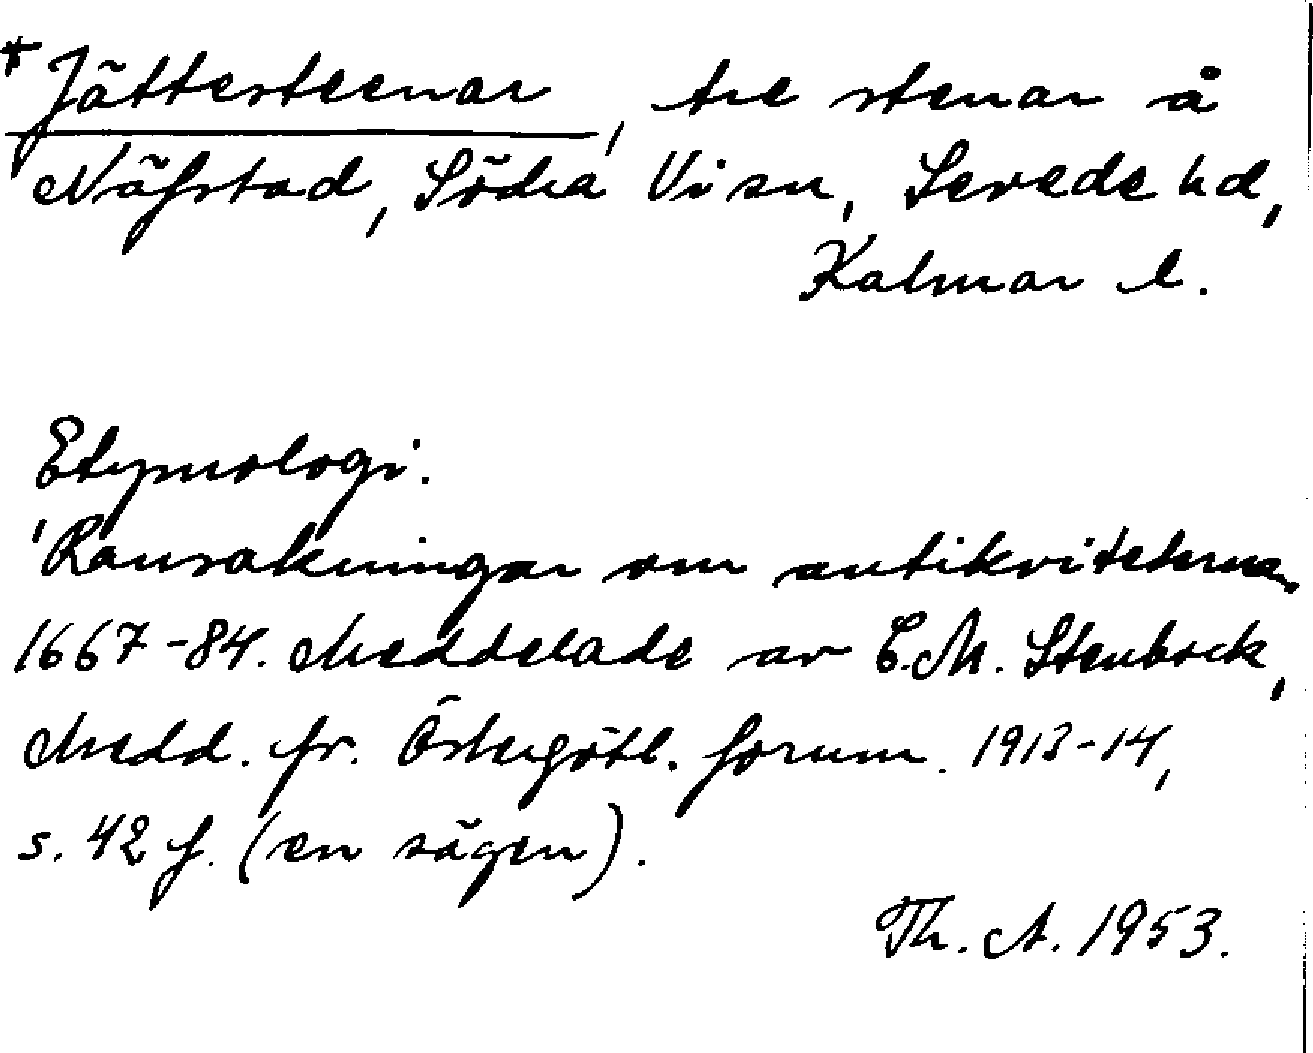 *Jättesteenar, tre stenar å
Näfstad, Södra Vi sn, Sevede hd,
Kalmar l.
Etymologi.
'Ransakningar om antikviteterna
1667-84. Meddelade av E.M. Stenbock,
Medd. fr. Östergötl. fornm. 1913-14,
s. 42 f. (en sägen).
Th. A. 1953.